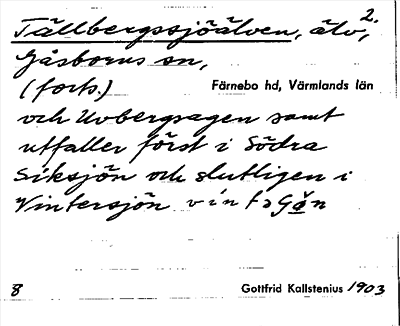 2.
Tällbergssjöälven, älv,
Gåsborns sn,
(forts.) Färnebo hd, Värmlands län
och Uvbergsagen samt
utfaller först i Södra
Siksjön och slutligen i
Vintersjön
8 Gottfrid Kallstenius 1903